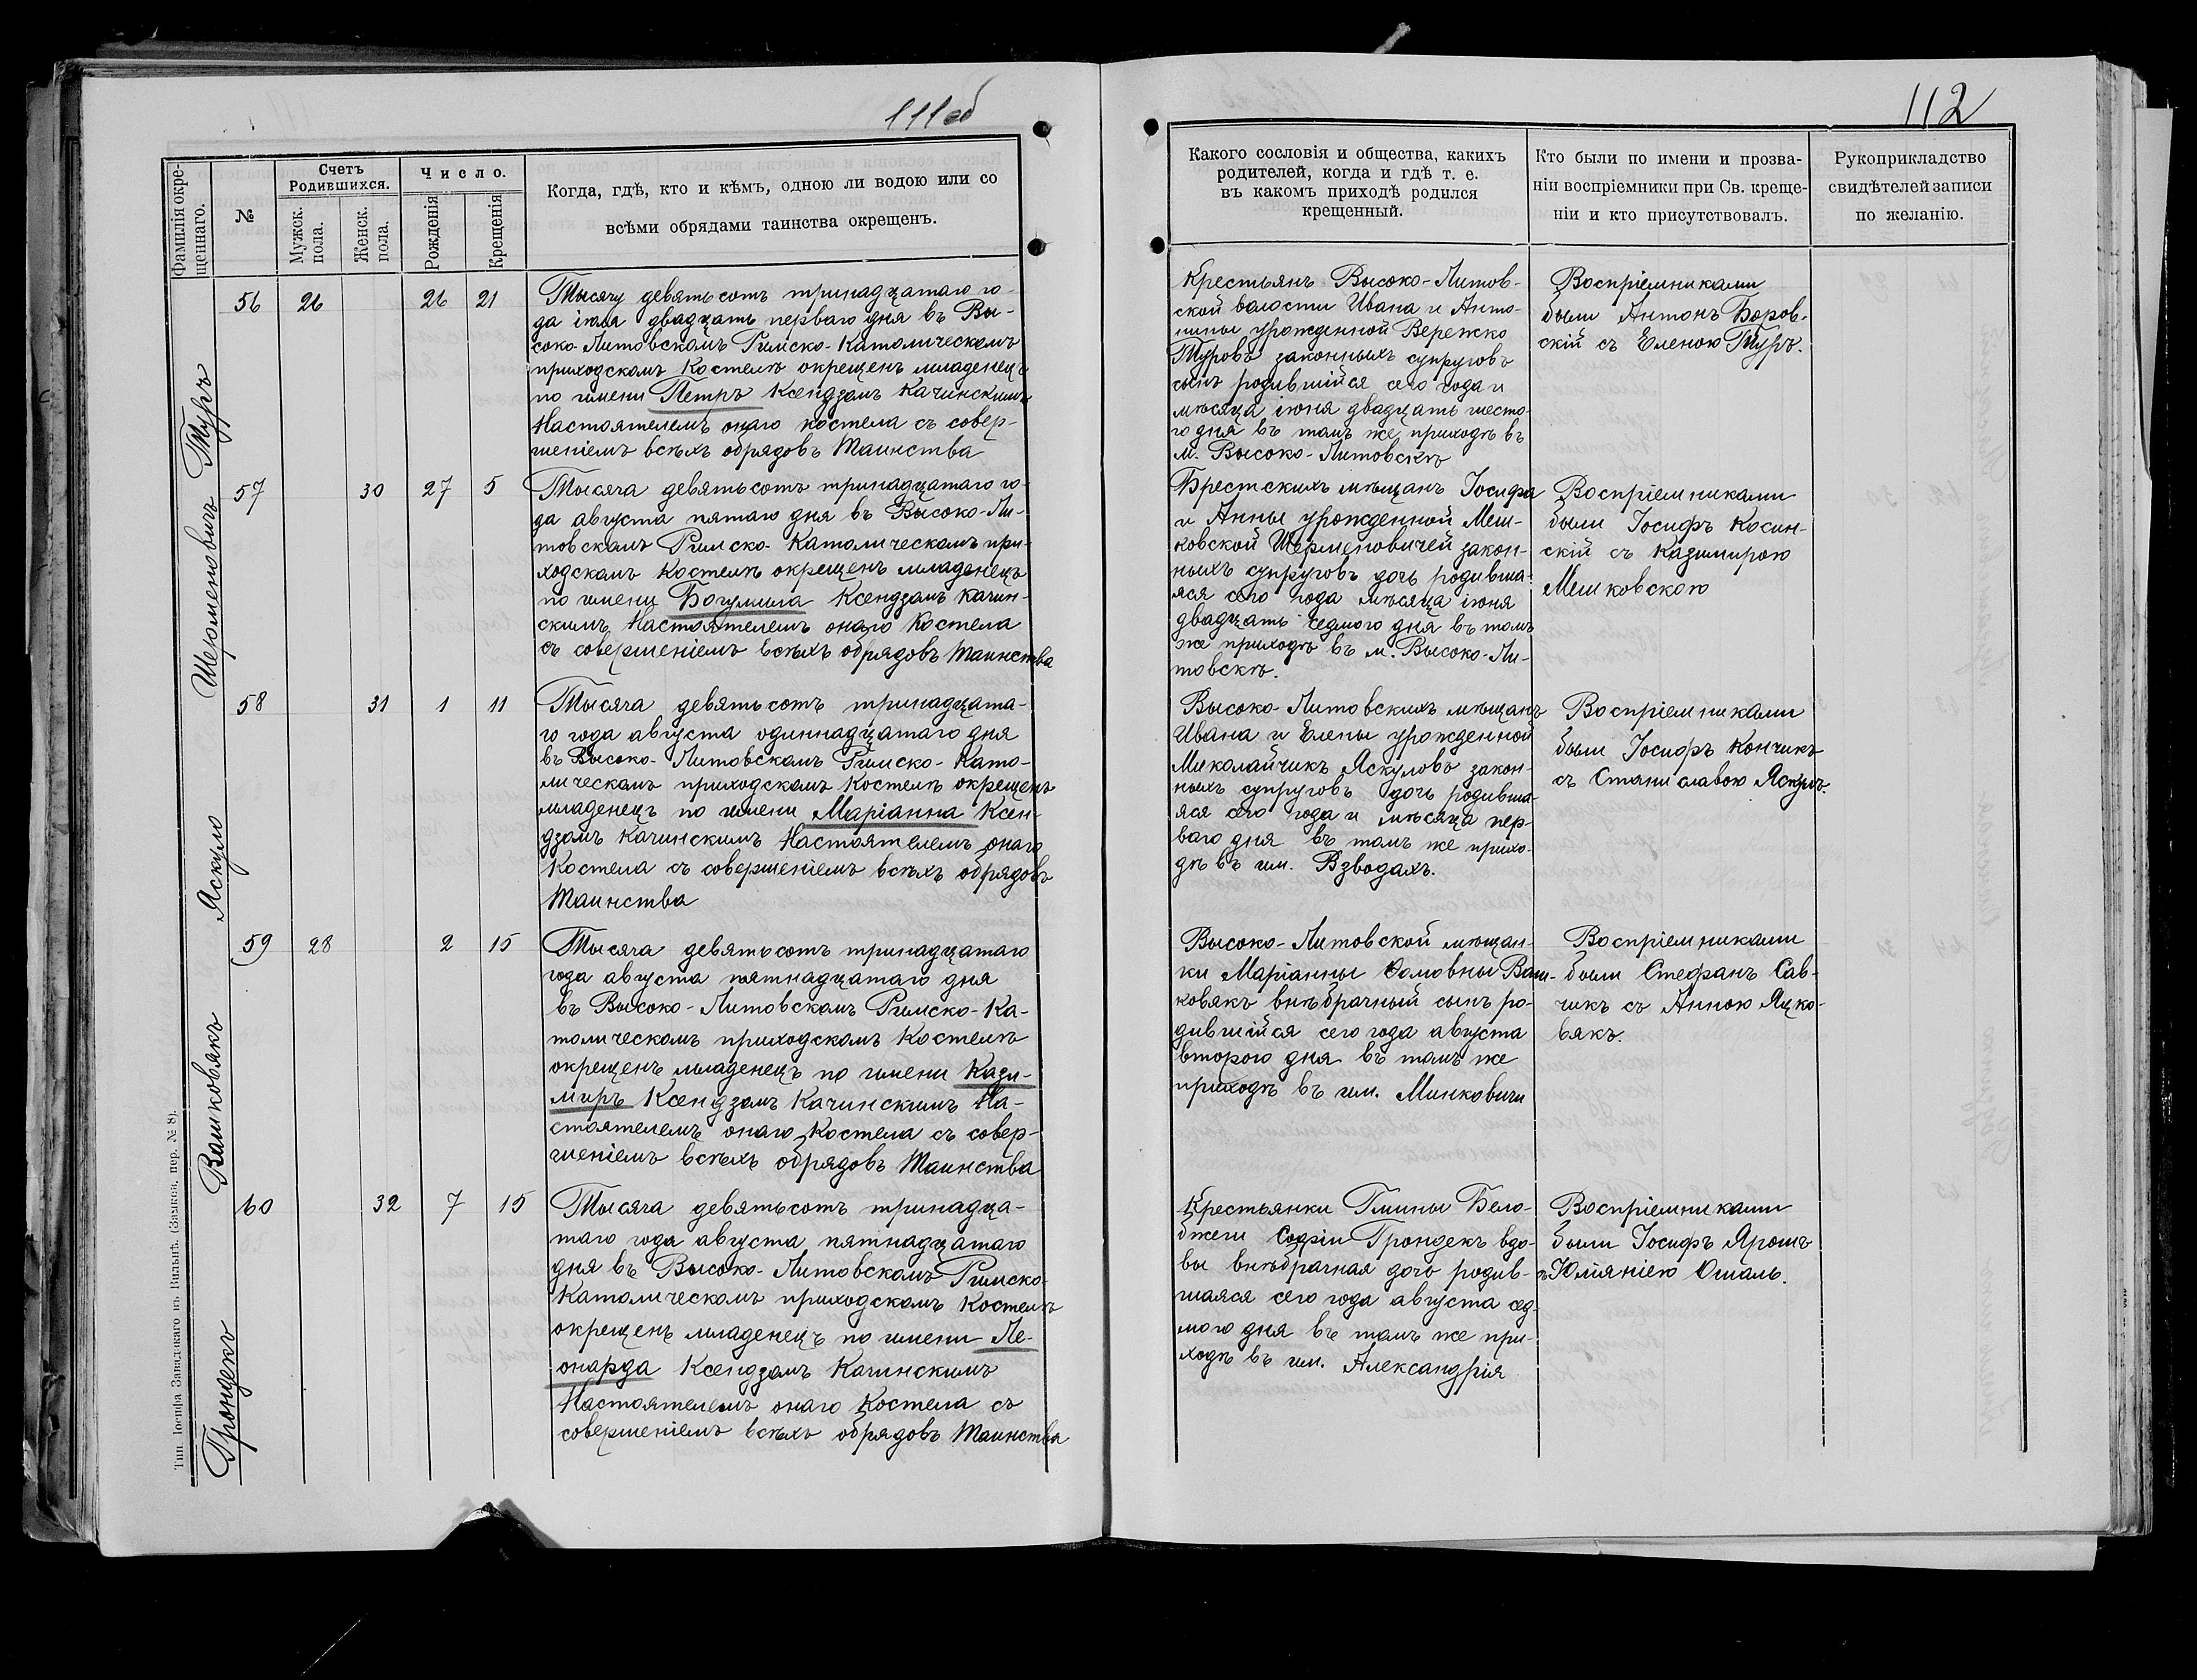 111об
Фамилія окре-
щеннаго.
№
Счетъ
Родившихся.
Мужск.
пола.
Женск.
пола.
Число.
Рожденія
Крещенія
Когда, гдѣ, кто и кѣмъ, одною ли водою или со
всѣми обрядами таинства окрещенъ.
Туръ
56 26 26 21
Тысячу девятьсотъ тринадцатаго го-
да іюля двадцать перваго дня въ Вы-
соко-Литовскомъ Римско-Католическомъ
приходскомъ Костелѣ окрещенъ младенецъ
по имени Петръ Ксендзомъ Качинскимъ
Настоятелемъ онаго костела съ совер-
шеніемъ всѣхъ обрядовъ Таинства
Шерменовичъ
57 30 27 5
Тысяча девятьсотъ тринадцатаго го-
да августа пятаго дня въ Высоко-Ли-
товскомъ Римско-Католическомъ при-
ходскомъ Костелѣ окрещенъ младенецъ
по имени Богумила Ксендзомъ Качин-
скимъ Настоятелемъ онаго Костела
съ совершеніемъ всѣхъ обрядовъ Таинства
Яскуло
58 31 1 11
Тысяча девятьсотъ тринадцата-
го года августа одиннадцатаго дня
въ Высоко-Литовскомъ Римско-Като-
лическомъ приходскомъ Костелѣ окрещенъ
младенецъ по имени Маріанна Ксен-
дзомъ Качинскимъ Настоятелемъ онаго
Костела съ совершеніемъ всѣхъ обрядовъ
Таинства
Вашковякъ
59 28 2 15
Тысяча девятьсотъ тринадцатаго
года августа пятнадцатаго дня
въ Высоко-Литовскомъ Римско-Ка-
толическомъ приходскомъ Костелѣ
окрещенъ младенецъ по имени Кази-
миръ Ксендзомъ Качинскимъ На-
стоятелемъ онаго Костела съ совер-
шеніемъ всѣхъ обрядовъ Таинства
Грондекъ
60 32 7 15
Тысяча девятьсотъ тринадца-
таго года августа пятнадцатаго
дня въ Высоко-Литовскомъ Римско-
Католическомъ приходскомъ Костелѣ
окрещенъ младенецъ по имени Ле-
онарда Ксендзомъ Качинскимъ
Настоятелемъ онаго Костела съ
совершеніемъ всѣхъ обрядовъ Таинства
Тип. Іосифа Завадзкаго въ Вильнѣ. (Замков. пер. № 8).
112
Какого сословія и общества, какихъ
родителей, когда и гдѣ т. е.
въ какомъ приходѣ родился
крещенный.
Кто были по имени и прозва-
ніи воспріемники при Св. креще-
ніи и кто присутствовалъ.
Рукоприкладство
свидѣтелей записи
по желанію.
Крестьянъ Высоко-Литов-
ской волости Ивана и Анто-
нины урожденной Вережко
Туровъ законныхъ супруговъ
сынъ родившійся сего года и
мѣсяца іюня двадцать шесто-
го дня въ томъ же приходѣ въ
м. Высоко-Литовскѣ
Воспріемниками
были Антонъ Боров-
скій съ Еленою Туръ.
Брестскихъ мѣщанъ Іосифа
и Анны урожденной Меш-
ковской Шерменовичей закон-
ныхъ супруговъ дочь родивша-
яся сего года мѣсяца іюня
двадцать седмого дня въ томъ
же приходѣ въ м. Высоко-Ли-
товскѣ.
Воспріемниками
были Іосифъ Косин-
скій съ Казимирою
Мешковскою
Высоко-Литовскихъ мѣщанъ
Ивана и Елены урожденной
Миколайчикъ Яскуловъ закон-
ныхъ супруговъ дочь родивша-
яся сего года и мѣсяца пер-
ваго дня въ томъ же прихо-
дѣ въ им. Взводахъ.
Воспріемниками
были Іосифъ Кончикъ
съ Станиславою
Высоко-Литовской мѣщан-
ки Маріанны Ѳомовны Ваш-
ковякъ внѣбрачный сынъ ро-
дившійся сего года августа
второго дня въ томъ же
приходѣ въ им. Минковичи
Воспріемниками
были Стефанъ Сав-
чикъ съ Анною Яцко-
вякъ.
Крестьянки Гмины Бело-
бжеги Софіи Грондекъ вдо-
вы внѣбрачная дочь родив-
шаяся сего года августа сед-
мого дня въ томъ же при-
ходѣ въ им. Александрія
Воспріемниками
были Іосифъ Ярошъ
съ Юліяніею